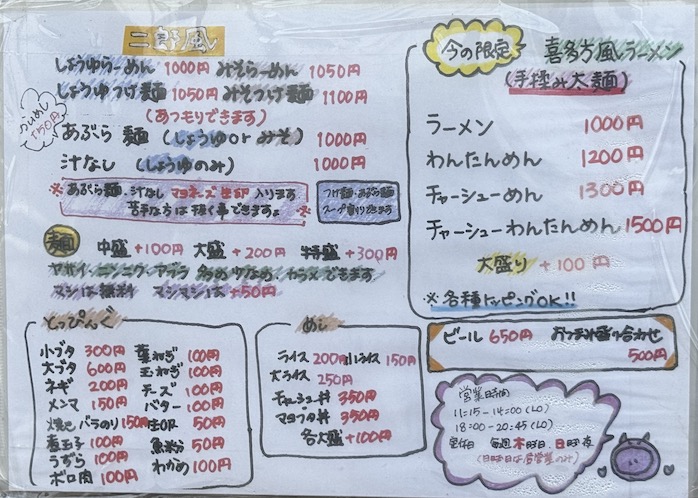 二郎風
しょうゆらーめん 1000円 みそらーめん 1050円
しょうゆつけ麺 1050円 みそつけ麺 1100円
(あつもりできます)
150円
あぶら麺 (しょうゆ or みそ) 1000円
汁なし (しょうゆのみ) 1000円
※あぶら麺・汁なし マヨネーズ 生卵 入ります
苦手な方は抜く事できます。※
つけ麺・あぶら麺
スープ割りできます
麺 中盛 +100円 大盛 +200円 特盛 +300円
ヤサイ、ニンニク、アブラ 多め 少なめ カラメ できます
マシは無料 マシマシは +50円
とっぴんぐ
小ブタ 300円
大ブタ 600円
ネギ 200円
メンマ 150円
バラのり 150円
煮玉子 100円
うずら 100円
ボロ肉 100円
葉ねぎ 100円
玉ねぎ 100円
チーズ 100円
バター 100円
生卵 50円
魚粉 50円
わかめ 100円
めし
ライス 200円 小ライス 150円
大ライス 250円
チャーシュー丼 350円
マヨブタ丼 350円
各大盛 +100円
今の限定 喜多方風ラーメン
(手揉み太麺)
ラーメン 1000円
わんたんめん 1200円
チャーシューめん 1300円
チャーシューわんたんめん 1500円
大盛り +100円
※各種トッピングOK!!
ビール 650円 おつまみ盛り合わせ
500円
営業時間
11:15-14:00 (LO)
18:00-20:45 (LO)
定休日 毎週木曜日、日曜夜
(日曜日は昼営業のみ)